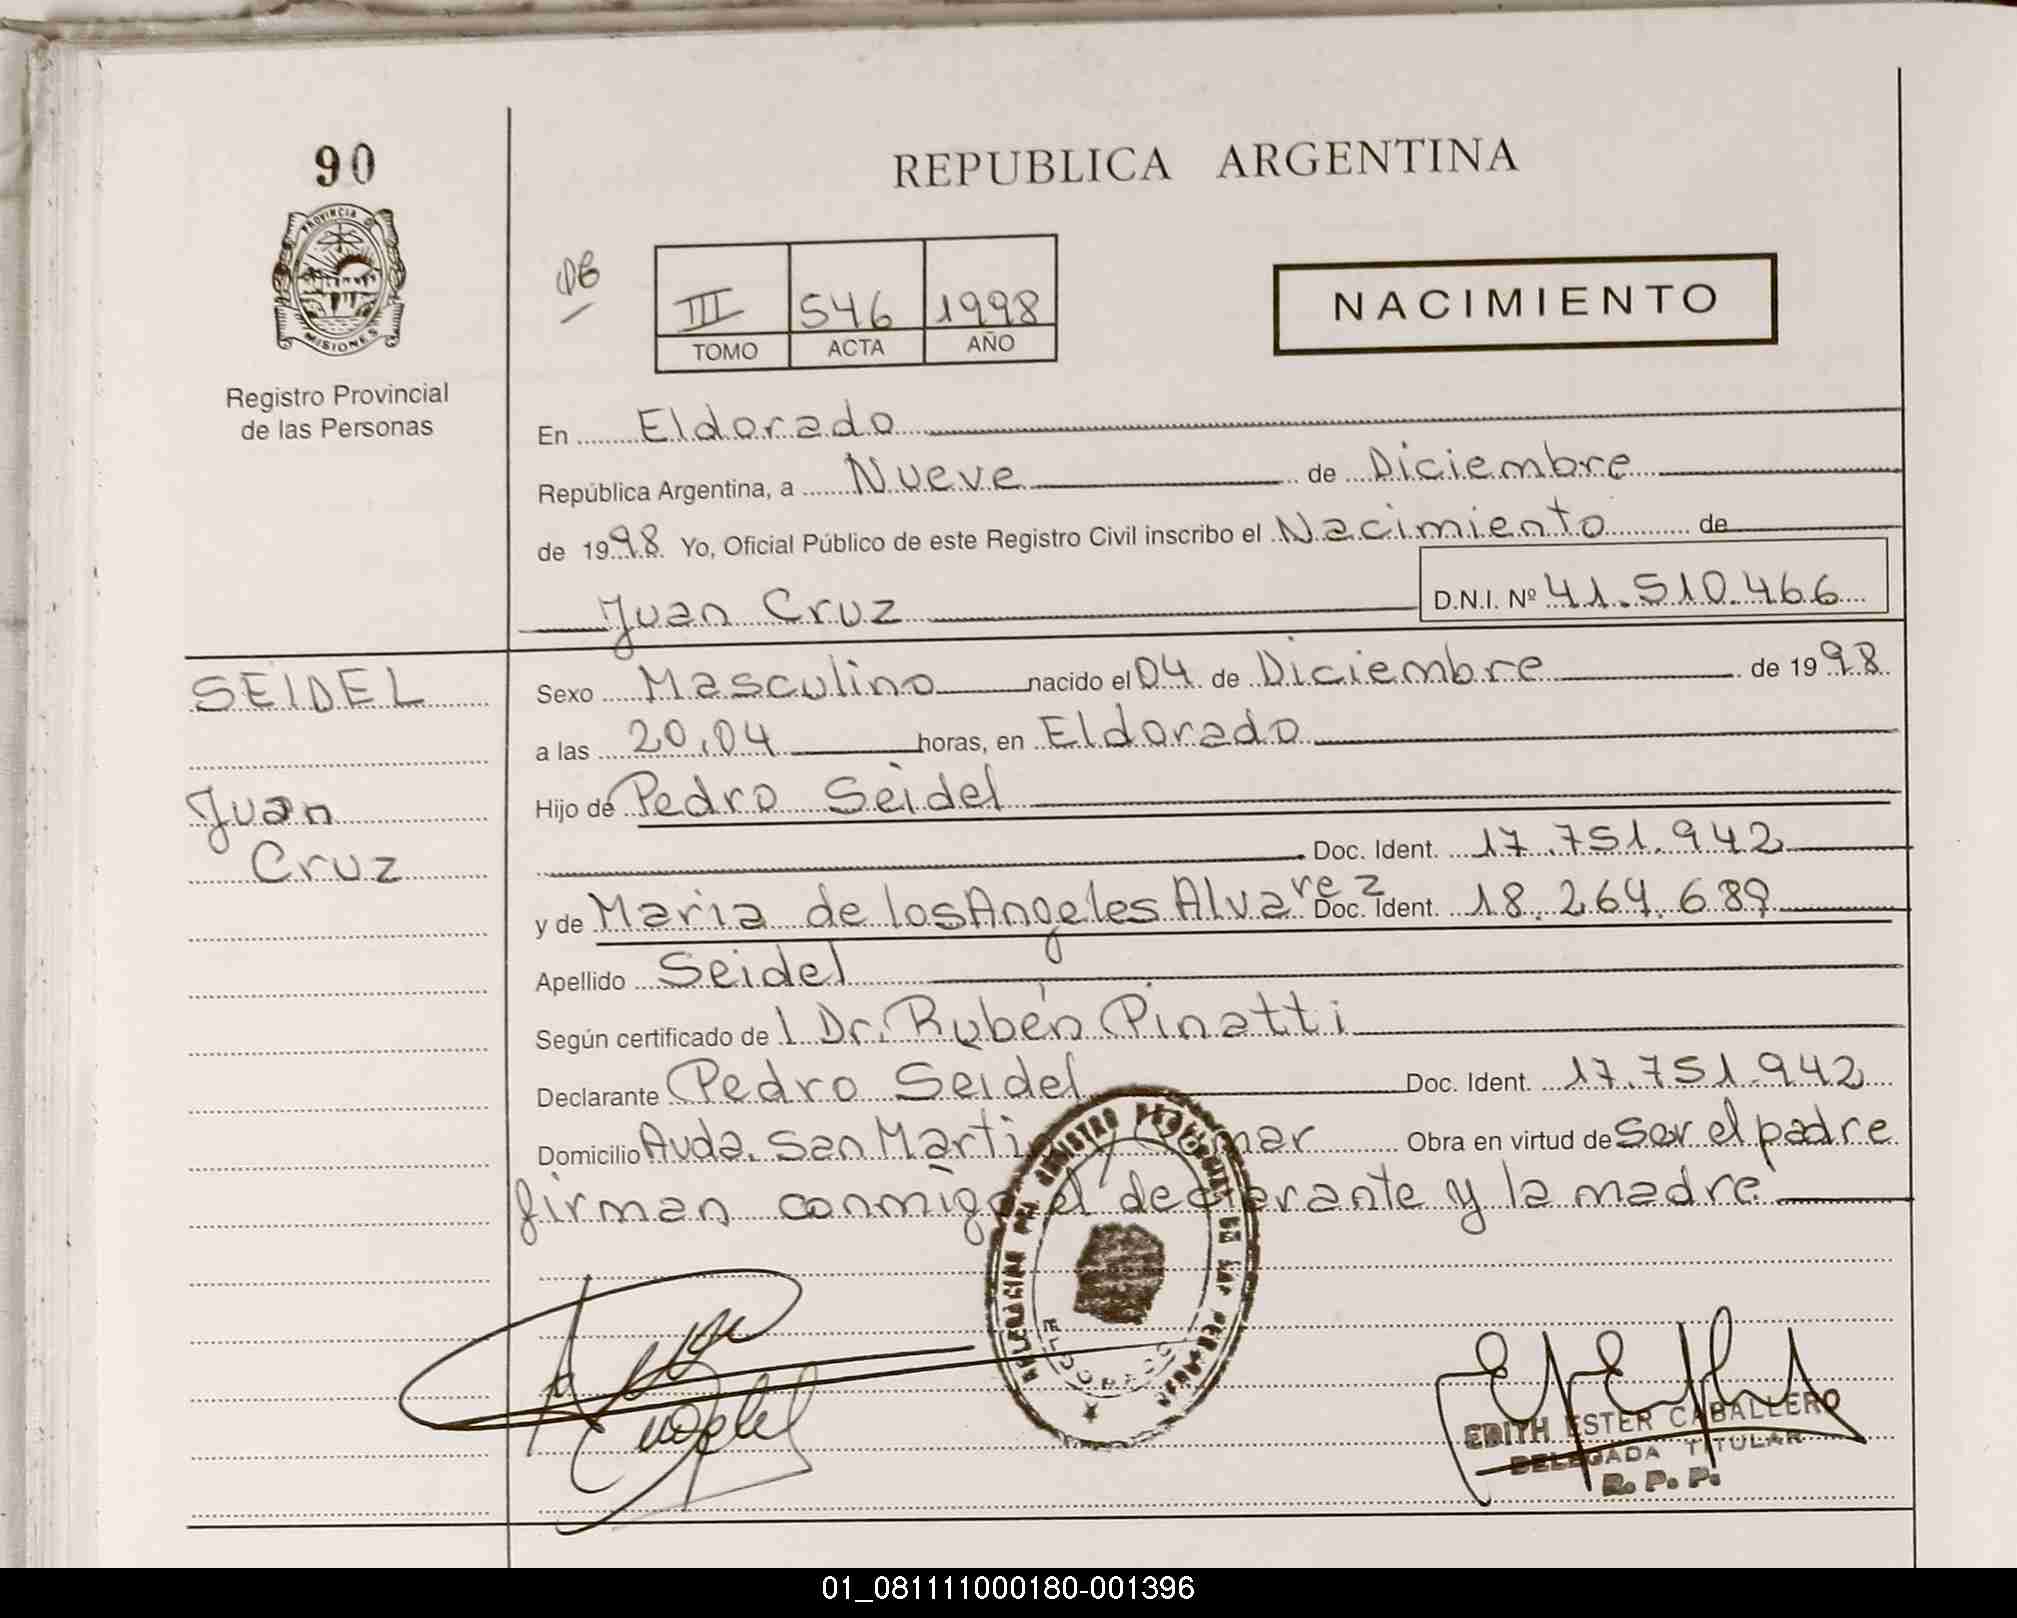 90
PROVINCIA DE
MISIONES
Registro Provincial
de las Personas
REPUBLICA ARGENTINA
III 546 1998
TOMO ACTA AÑO
NACIMIENTO
En Eldorado
República Argentina, a Nueve de Diciembre
de 1998 Yo, Oficial Público de este Registro Civil inscribo el Nacimiento de
Juan Cruz D.N.I. Nº 41.510.466
SEIDEL
Juan
Cruz
Sexo Masculino nacido el 04 de Diciembre de 1998
a las 20,04 horas, en Eldorado
Hijo de Pedro Seidel
Doc. Ident. 17.751.942
y de Maria de los Angeles Alvarez Doc. Ident. 18.264.689
Apellido Seidel
Según certificado del Dr. Rubén Pinatti
Declarante Pedro Seidel Doc. Ident. 17.751.942
Domicilio Avda. San Martin y Obra en virtud de ser el padre
firman conmigo el declarante y la madre
ELDORADO
EDITH ESTER CABALLERO
DELEGADA TITULAR
R. P. P.
01_081111000180-001396